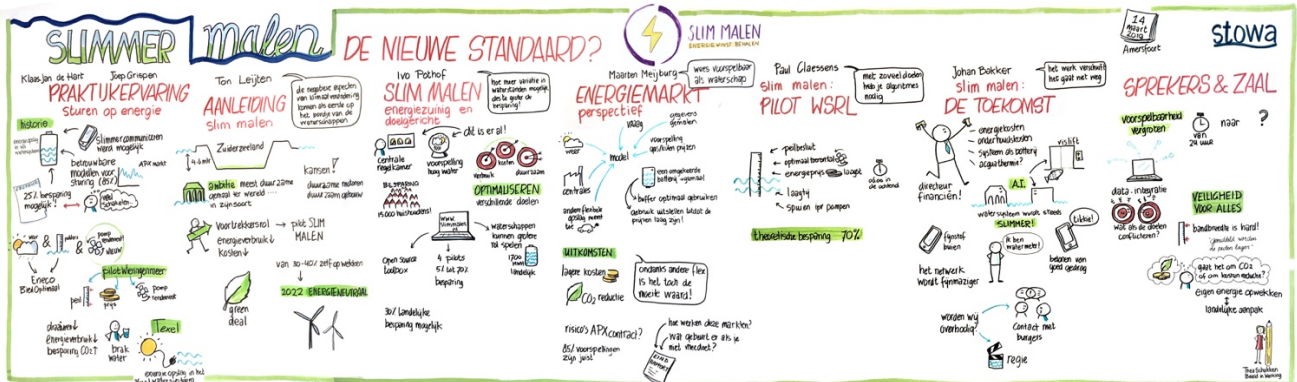 SLIMMER malen DE NIEUWE STANDAARD?
SLIM MALEN
ENERGIEWINST BEHALEN
14 maart 2019
Amersfoort
stowa
Klaasjan de Hart Joep Grispen
PRAKTIJKERVARING
sturen op energie
historie
Slimmer communiceren
werd mogelijk
betrouwbare
modellen voor
sturing (85%)
APX markt
25% besparing
mogelijk!
veel
schakelen
&
&
pomp
rendement!
NIEUW
Eneco
pilot Wieringermeer
peil
prijs
pomp
rendement
draaiuren↓
energieverbruik↓
besparing CO2↑
brak
water
Texel
energie opslag in het
Ton Leijten
AANLEIDING
slim malen
de negatieve aspecten
van klimaatverandering
komen als eerste op
het bordje van de
waterschappen
Zuiderzeeland
4-6 mtr
kansen!
ambitie meest duurzame
gemaal ter wereld....
in zijn soort
duurzame motoren
duurzaam gebouw
voortrekkersrol
energieverbruik↓
kosten↓
pilot SLIM
MALEN
van 30-40% zelf opwekken
2022 ENERGIENEUTRAAL
green
deal
Ivo Pothof
SLIM MALEN
energiezuinig en
doelgericht
hoe meer variatie in
waterstanden mogelijk,
deste groter de
besparing!
dit is er al!
centrale
regelkamer
voorspelling
hoog water
verbruik
kosten
duurzaam
OPTIMALISEREN
verschillende doelen
BESPARING
15.000 huishoudens!
www.
slimmalen.
nl
Open source
toolbox
4 pilots
5% tot 70%
besparing
waterschappen
kunnen grotere
rol spelen
1700
MW
landelijk
30% landelijke
besparing mogelijk
Maarten Meijburg
ENERGIEMARKT
perspectief
wees voorspelbaar
als waterschap
vraag
gegevens
gemalen
weer
voorspelling
uurlijkse prijzen
model
centrales
een omgekeerde
batterij - gemaal
buffer optimaal gebruiken
andere flexibele
opslag neemt
toe
Gebruik uitstellen totdat de
prijzen laag zijn!
UITKOMSTEN
lagere kosten
CO2 reductie
ondanks andere flex
is het toch de
moeite waard!
risico's APX contract?
85% voorspellingen
zijn juist
hoe werken deze markten?
Wat gebeurt er als je
niet meedoet?
EIND
RAPPORT
Paul Claessens
slim malen:
PILOT WSRL
met zoveel doelen
heb je algoritmes
nodig
peilbesluit
optimaal toerental
energieprijs laagst
06.00 in
de ochtend
laagtij
spuien ipv pompen
theoretische besparing 70%
Johan Bakker
slim malen:
DE TOEKOMST
het werk verschuift
het gaat niet weg
energiekosten
onderhoudskosten
systeem als batterij
acquathermie?
vislift
directeur
financiën!
A.I.
watersysteem wordt steeds
SLIMMER!
fijnstof
buien
het netwerk
wordt fijnmaziger
ik ben
watermeter!
tikkie!
belonen van
goed gedrag
worden wij
overbodig?
contact met
burgers
regie
SPREKERS & ZAAL
Voorspelbaarheid
vergroten
van
24 uur
naar ?
data - integratie
wat als die doelen
conflicteren?
VEILIGHEID
VOOR ALLES
bandbreedte is hard!
gaat het om CO2
of om kosten reductie?
eigen energie opwekken
landelijke aanpak